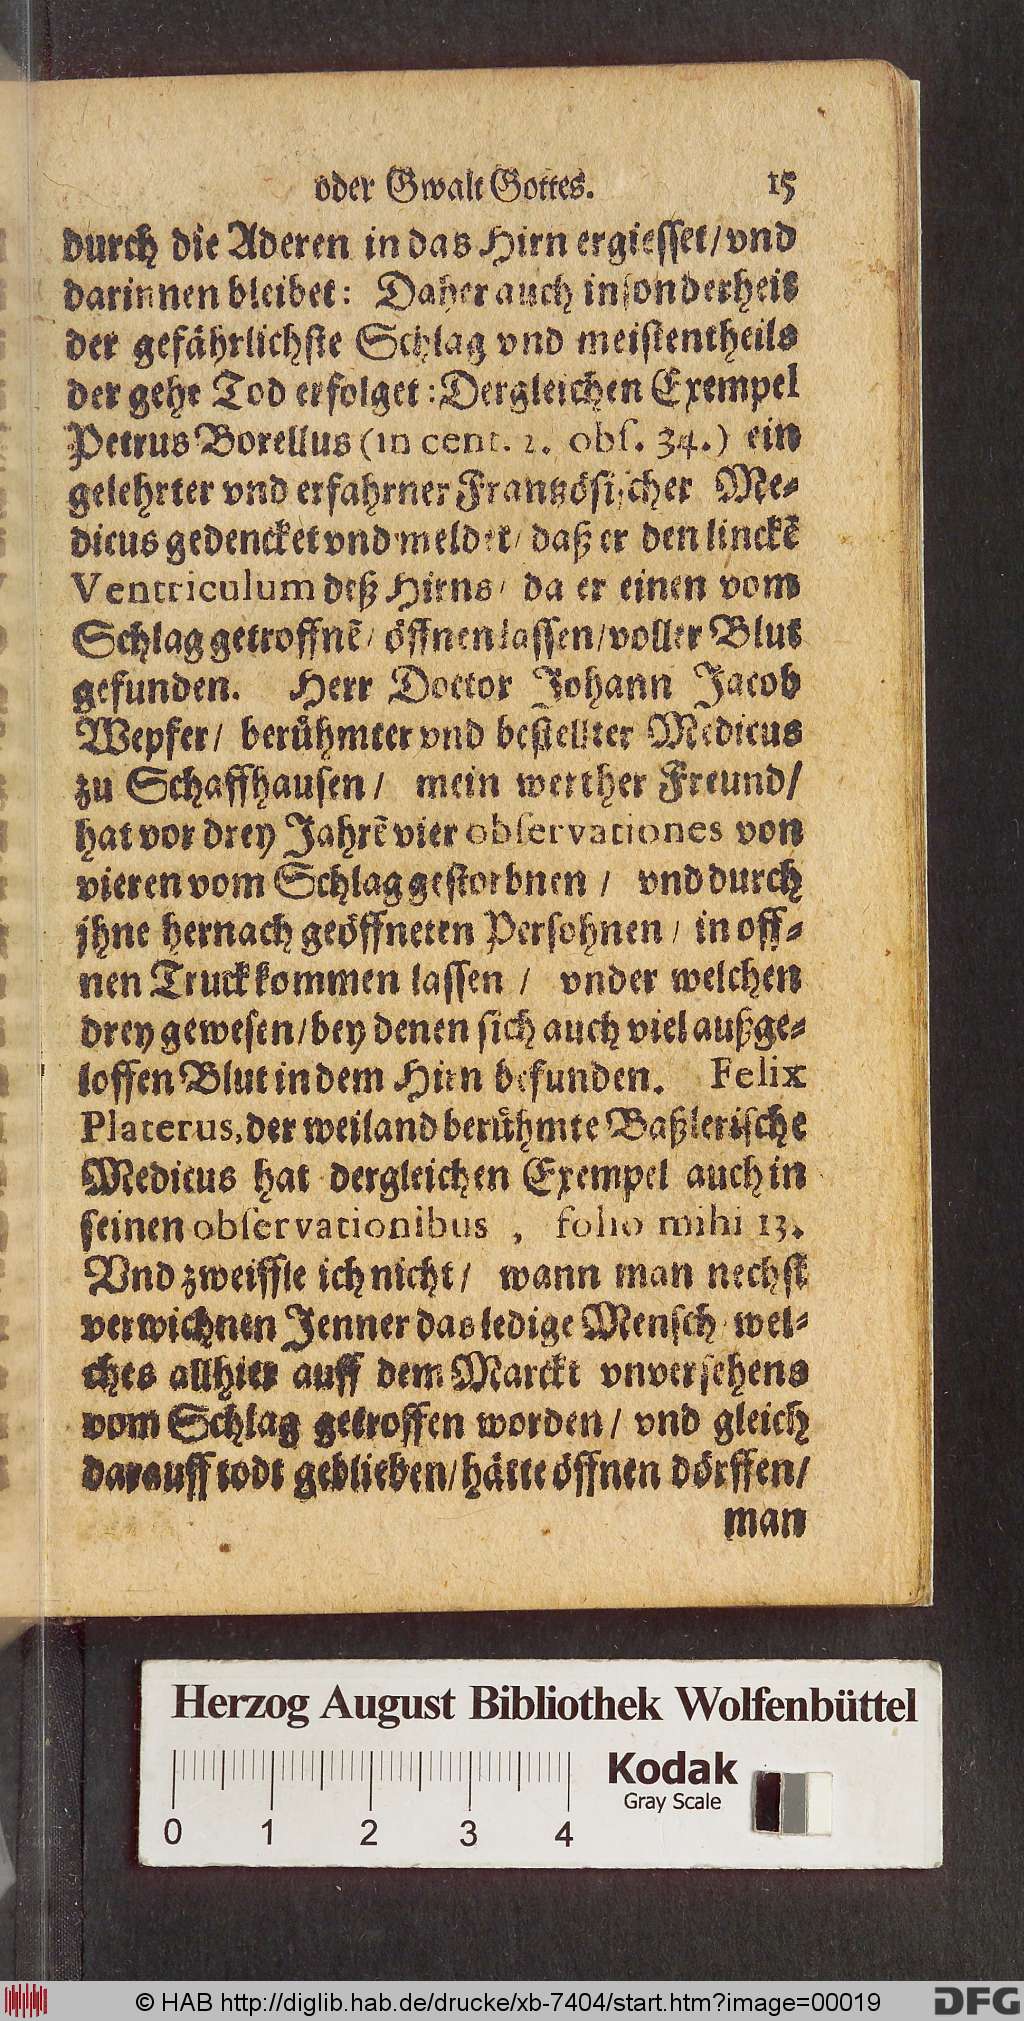 oder Gwalt Gottes. 15
durch die Aderen in das Hirn ergiesset/ vnd
darinnen bleibet: Daher auch insonderheit
der gefährlichste Schlag vnd meistentheils
der gehe Tod erfolget: Dergleichen Exempel
Petrus Borellus (in cent. 2. obs. 34.) ein
gelehrter vnd erfahrner Frantzösischer Me-
dicus gedencket vnd meldet/ daß er den linckẽ
Ventriculum deß Hirns/ da er einen vom
Schlag getroffnẽ/ öffnen lassen/ voller Blut
gefunden. Herr Doctor Johann Jacob
Wepfer/ berühmter vnd bestellter Medicus
zu Schaffhausen/ mein werther Freund/
hat vor drey Jahrẽ vier observationes von
vieren vom Schlag gestorbnen/ vnd durch
jhne hernach geöffneten Persohnen/ in off-
nen Truck kommen lassen/ vnder welchen
drey gewesen/ bey denen sich auch viel außge-
loffen Blut in dem Hirn befunden. Felix
Platerus, der weiland berühmte Baßlerische
Medicus hat dergleichen Exempel auch in
seinen observationibus, folio mihi 13.
Vnd zweiffle ich nicht/ wann man nechst
verwichnen Jenner das ledige Mensch/ wel-
ches allhier auff dem Marckt vnversehens
vom Schlag getroffen worden/ vnd gleich
darauff todt geblieben/ hätte öffnen dörffen/
man
Herzog August Bibliothek Wolfenbüttel
Kodak
Gray Scale
0 1 2 3 4
© HAB http://diglib.hab.de/drucke/xb-7404/start.htm?image=00019
DFG